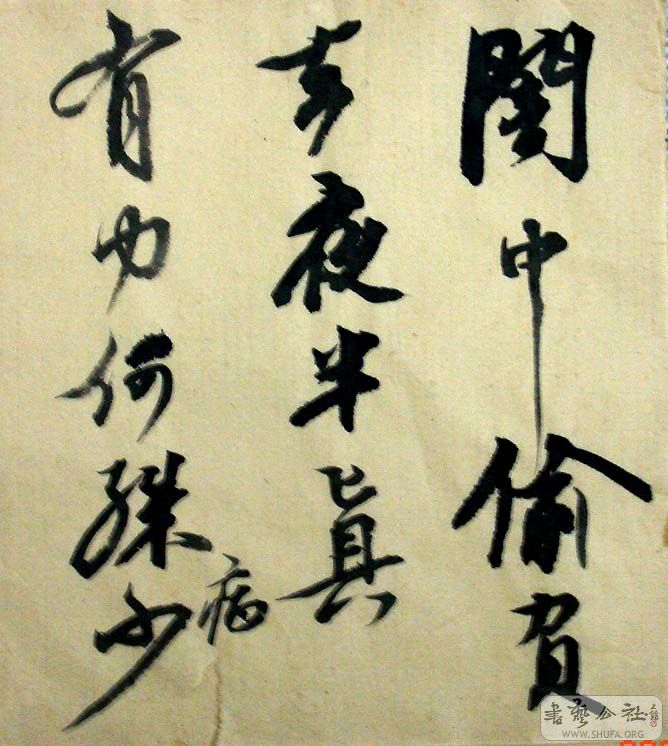 闇中偷負
去夜半真
有力何殊病少
書藝公社
WWW.SHUFA.ORG